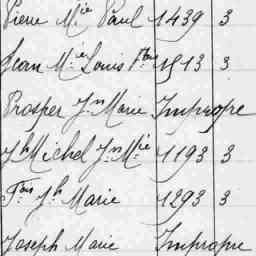 Pierre Mie Paul 1439 3
Jean Mie Louis Fois 1513 3
Prosper Jn Marie Impropre
Jh Michel Jn Mie 1193 3
Fois Jh Marie 1293 3
Joseph Marie Impropre